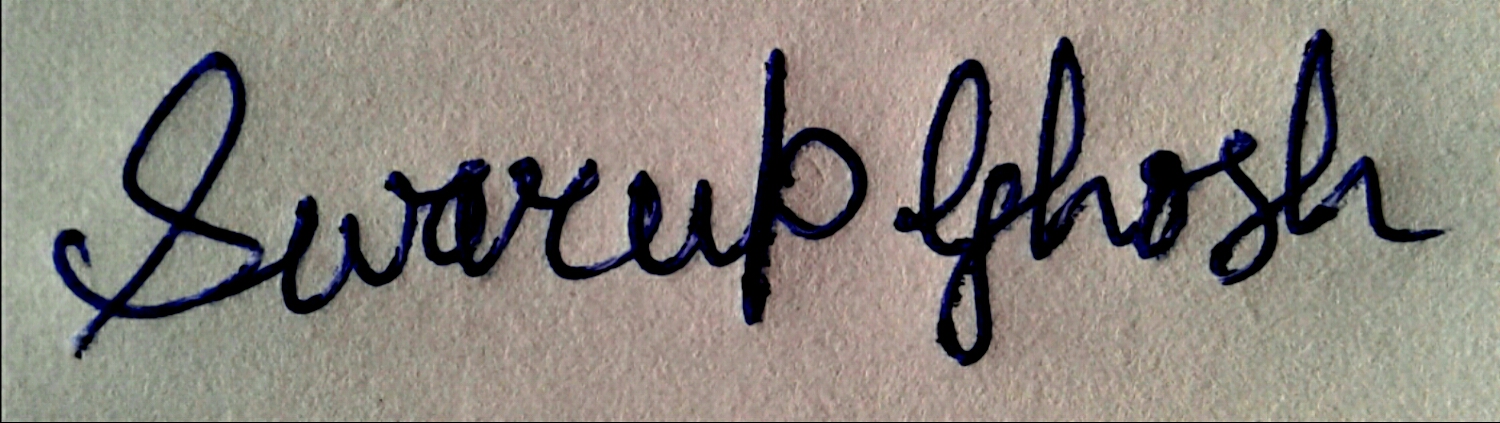 Swarup Ghosh